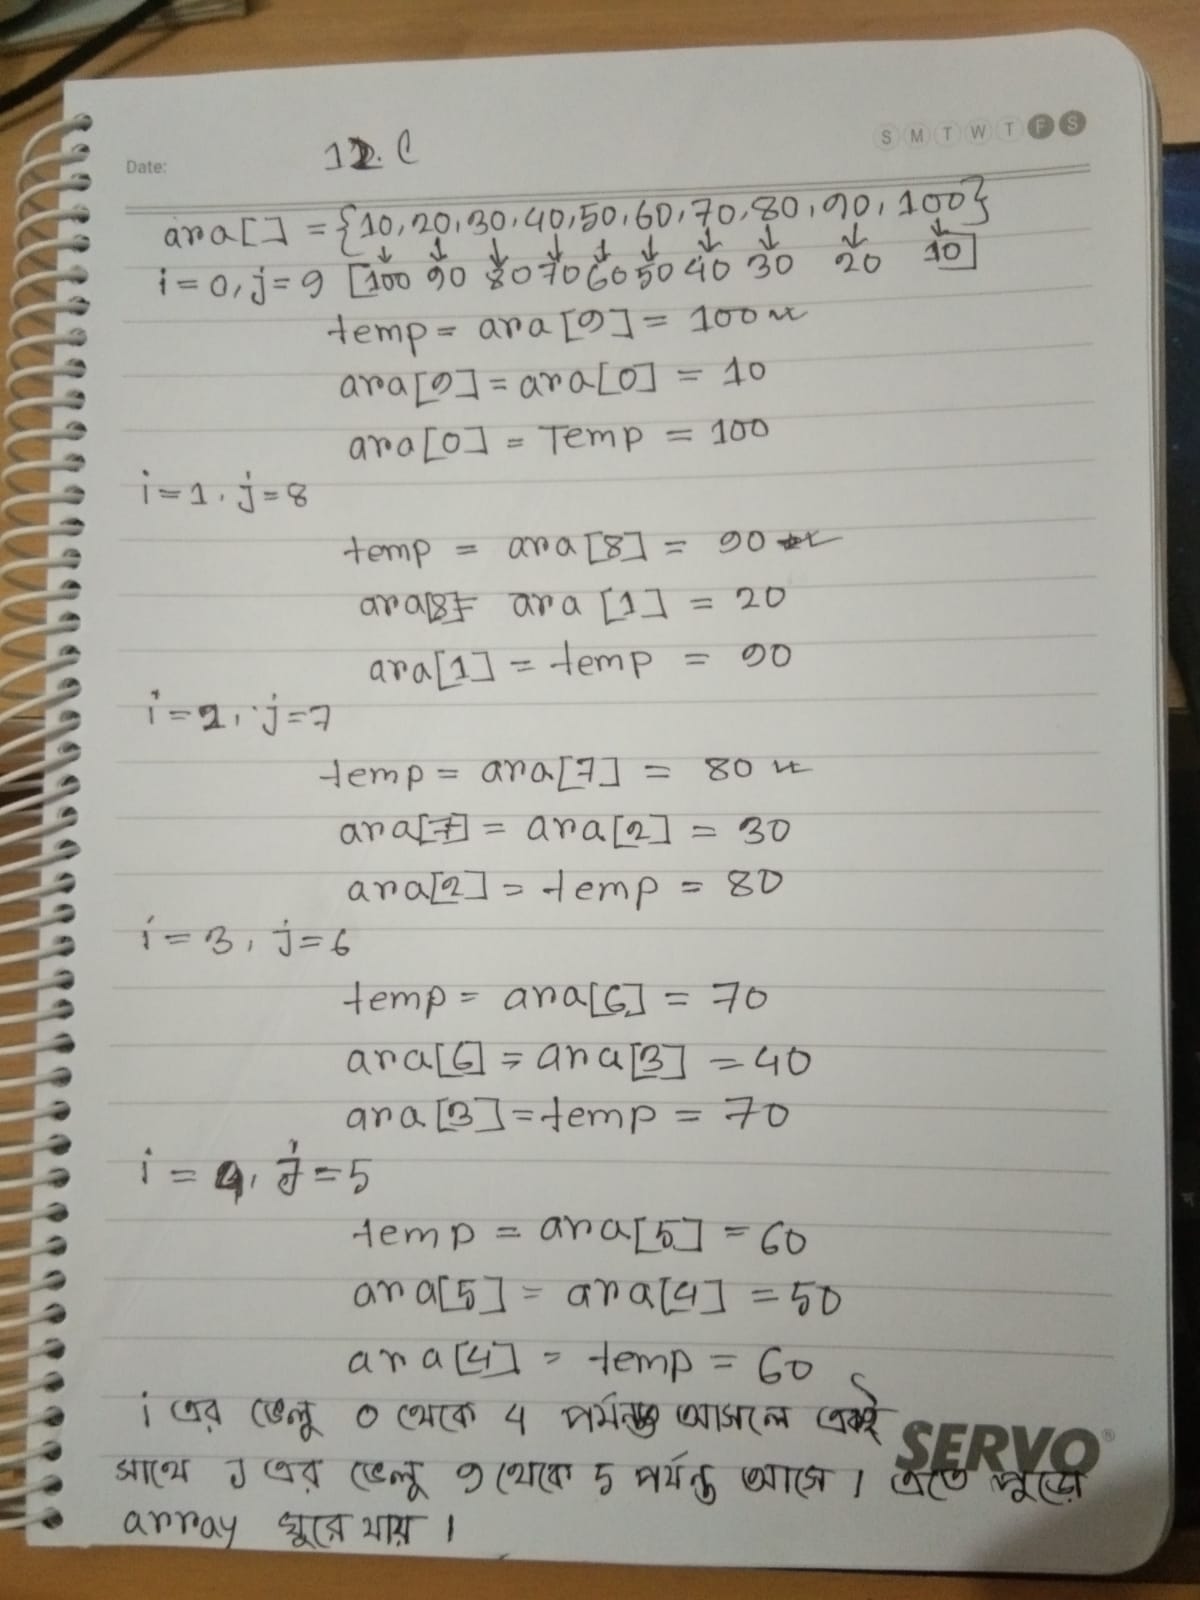 S M T W T F S
Date:
12. C
ara[] = {10, 20, 30, 40, 50, 60, 70, 80, 90, 100}
↓ ↓ ↓ ↓ ↓ ↓ ↓ ↓ ↓ ↓
i = 0, j = 9 [100 90 80 70 60 50 40 30 20 10]
temp = ara[9] = 100
ara[9] = ara[0] = 10
ara[0] = Temp = 100
i = 1, j = 8
temp = ara[8] = 90
ara[8] = ara[1] = 20
ara[1] = temp = 90
i = 2, j = 7
temp = ara[7] = 80
ara[7] = ara[2] = 30
ara[2] = temp = 80
i = 3, j = 6
temp = ara[6] = 70
ara[6] = ara[3] = 40
ara[3] = temp = 70
i = 4, j = 5
temp = ara[5] = 60
ara[5] = ara[4] = 50
ara[4] = temp = 60
i এর ভেলু 0 থেকে 4 পর্যন্ত আসলে একই
SERVO®
সাথে J এর ভেলু 9 থেকে 5 পর্যন্ত আসে। এতে পুড়ো
array ঘুরে যায়।